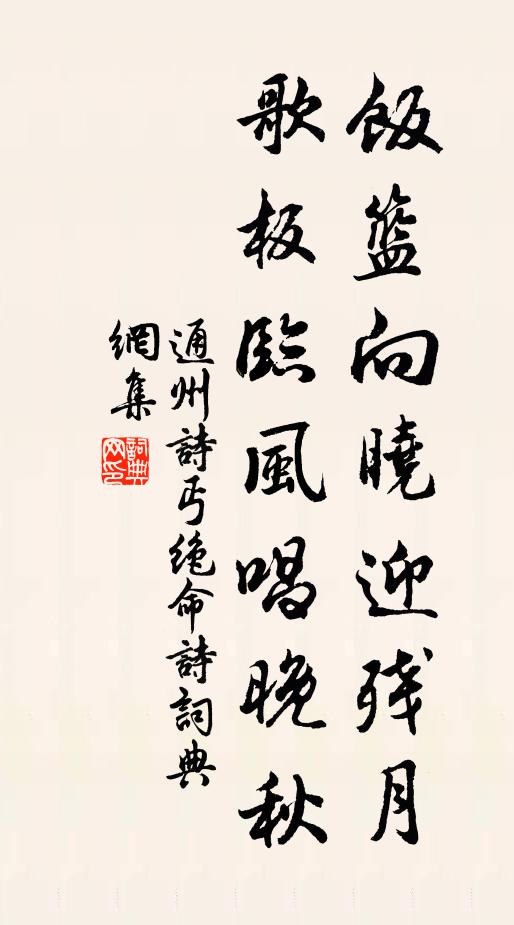 飯籃向曉迎残月
歌板臨風唱晚秋
通州詩丐绝命詩詞典
網集
詞典网印